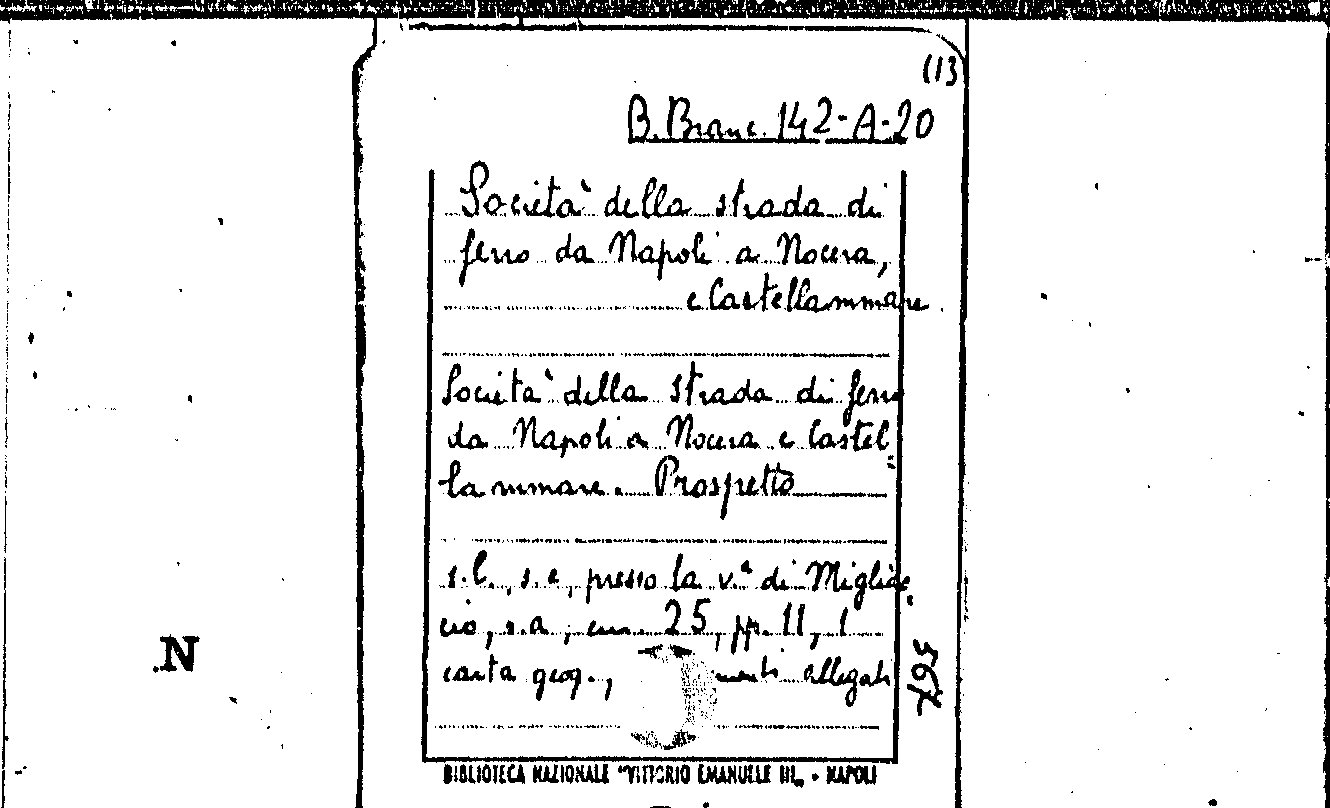 (13
B. Branc. 142-A-20
Società della strada di
ferro da Napoli a Nocera,
e Castellammare
Società della strada di ferro
da Napoli a Nocera e Castel=
lammare. Prospetto
s.l., s.e, presso la v.a di Migliac=
cio, s.a, cm. 25, pp. 11, 1
carta geog., allegati
567
N
BIBLIOTECA NAZIONALE "VITTORIO EMANUELE III„ - NAPOLI